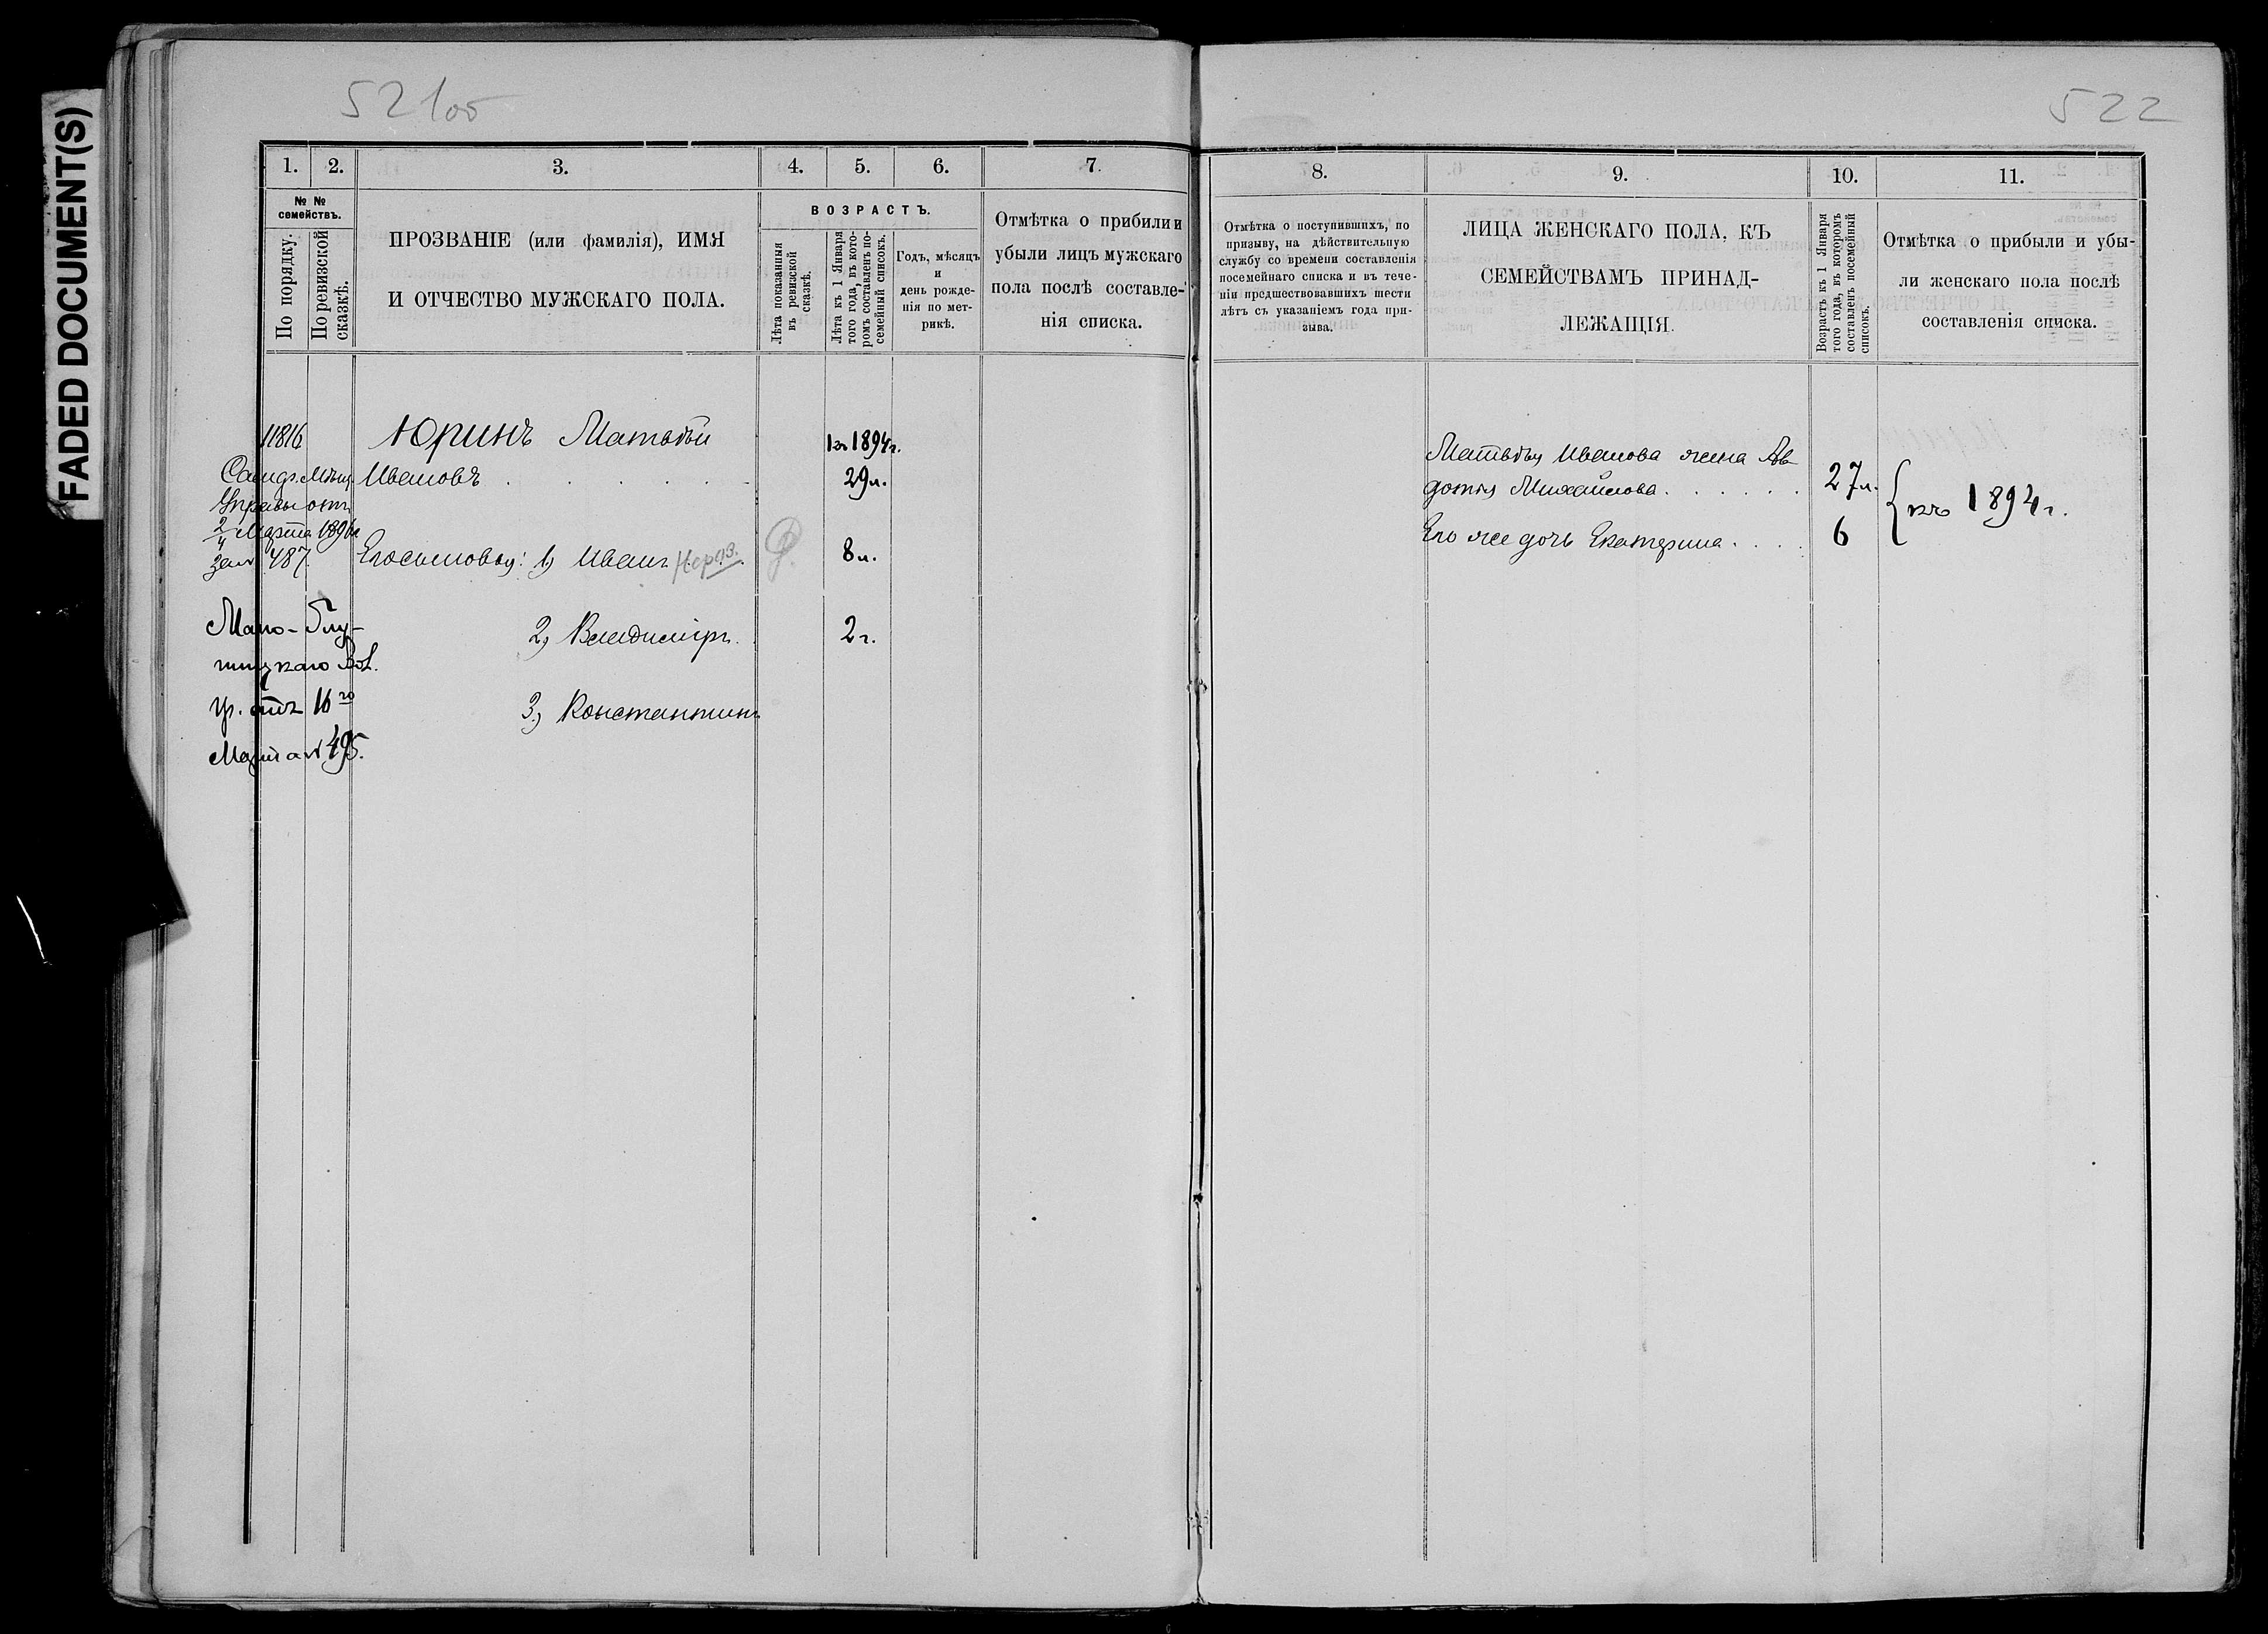 FADED DOCUMENT(S)
521об
1. 2. 3. 4. 5. 6. 7.
№ №
семействъ.
По порядку.
По ревизской
сказкѣ.
ПРОЗВАНІЕ (или фамилія), ИМЯ
И ОТЧЕСТВО МУЖСКАГО ПОЛА.
ВОЗРАСТЪ.
Лѣта показанія
въ ревизской
сказкѣ.
Лѣта къ 1 Января
того года, въ кото-
ромъ составленъ по-
семейный списокъ.
Годъ, мѣсяцъ
и
день рожде-
нія по мет-
рикѣ.
Отмѣтка о прибили и
убыли лицъ мужскаго
пола послѣ составле-
нія списка.
11816
Юринъ Матвѣй
1894г.
Ивановъ
29л.
Управы отъ
2 Марта 1896г
за № 487.
Его сыновья: 1) Иванъ
8л.
2) Владиміръ
2г.
3) Константинъ
Мало-Глу-
шицкаго Вол.
Пр. отъ 16го
Марта № 495.
522
8. 9. 10. 11.
Отмѣтка о поступившихъ, по
призыву, на дѣйствительную
службу со времени составленія
посемейнаго списка и въ тече-
ніи предшествовавшихъ шести
лѣтъ съ указаніемъ года при-
зыва.
ЛИЦА ЖЕНСКАГО ПОЛА, КЪ
СЕМЕЙСТВАМЪ ПРИНАД-
ЛЕЖАЩІЯ.
Возрастъ къ 1 Января
того года, въ которомъ
составленъ посемейный
списокъ.
Отмѣтка о прибыли и убы-
ли женскаго пола послѣ
составленія списка.
Матвѣя Иванова жена Ав
дотья Михайлова
27л.
къ 1894г.
Его же дочь Екатерина
6